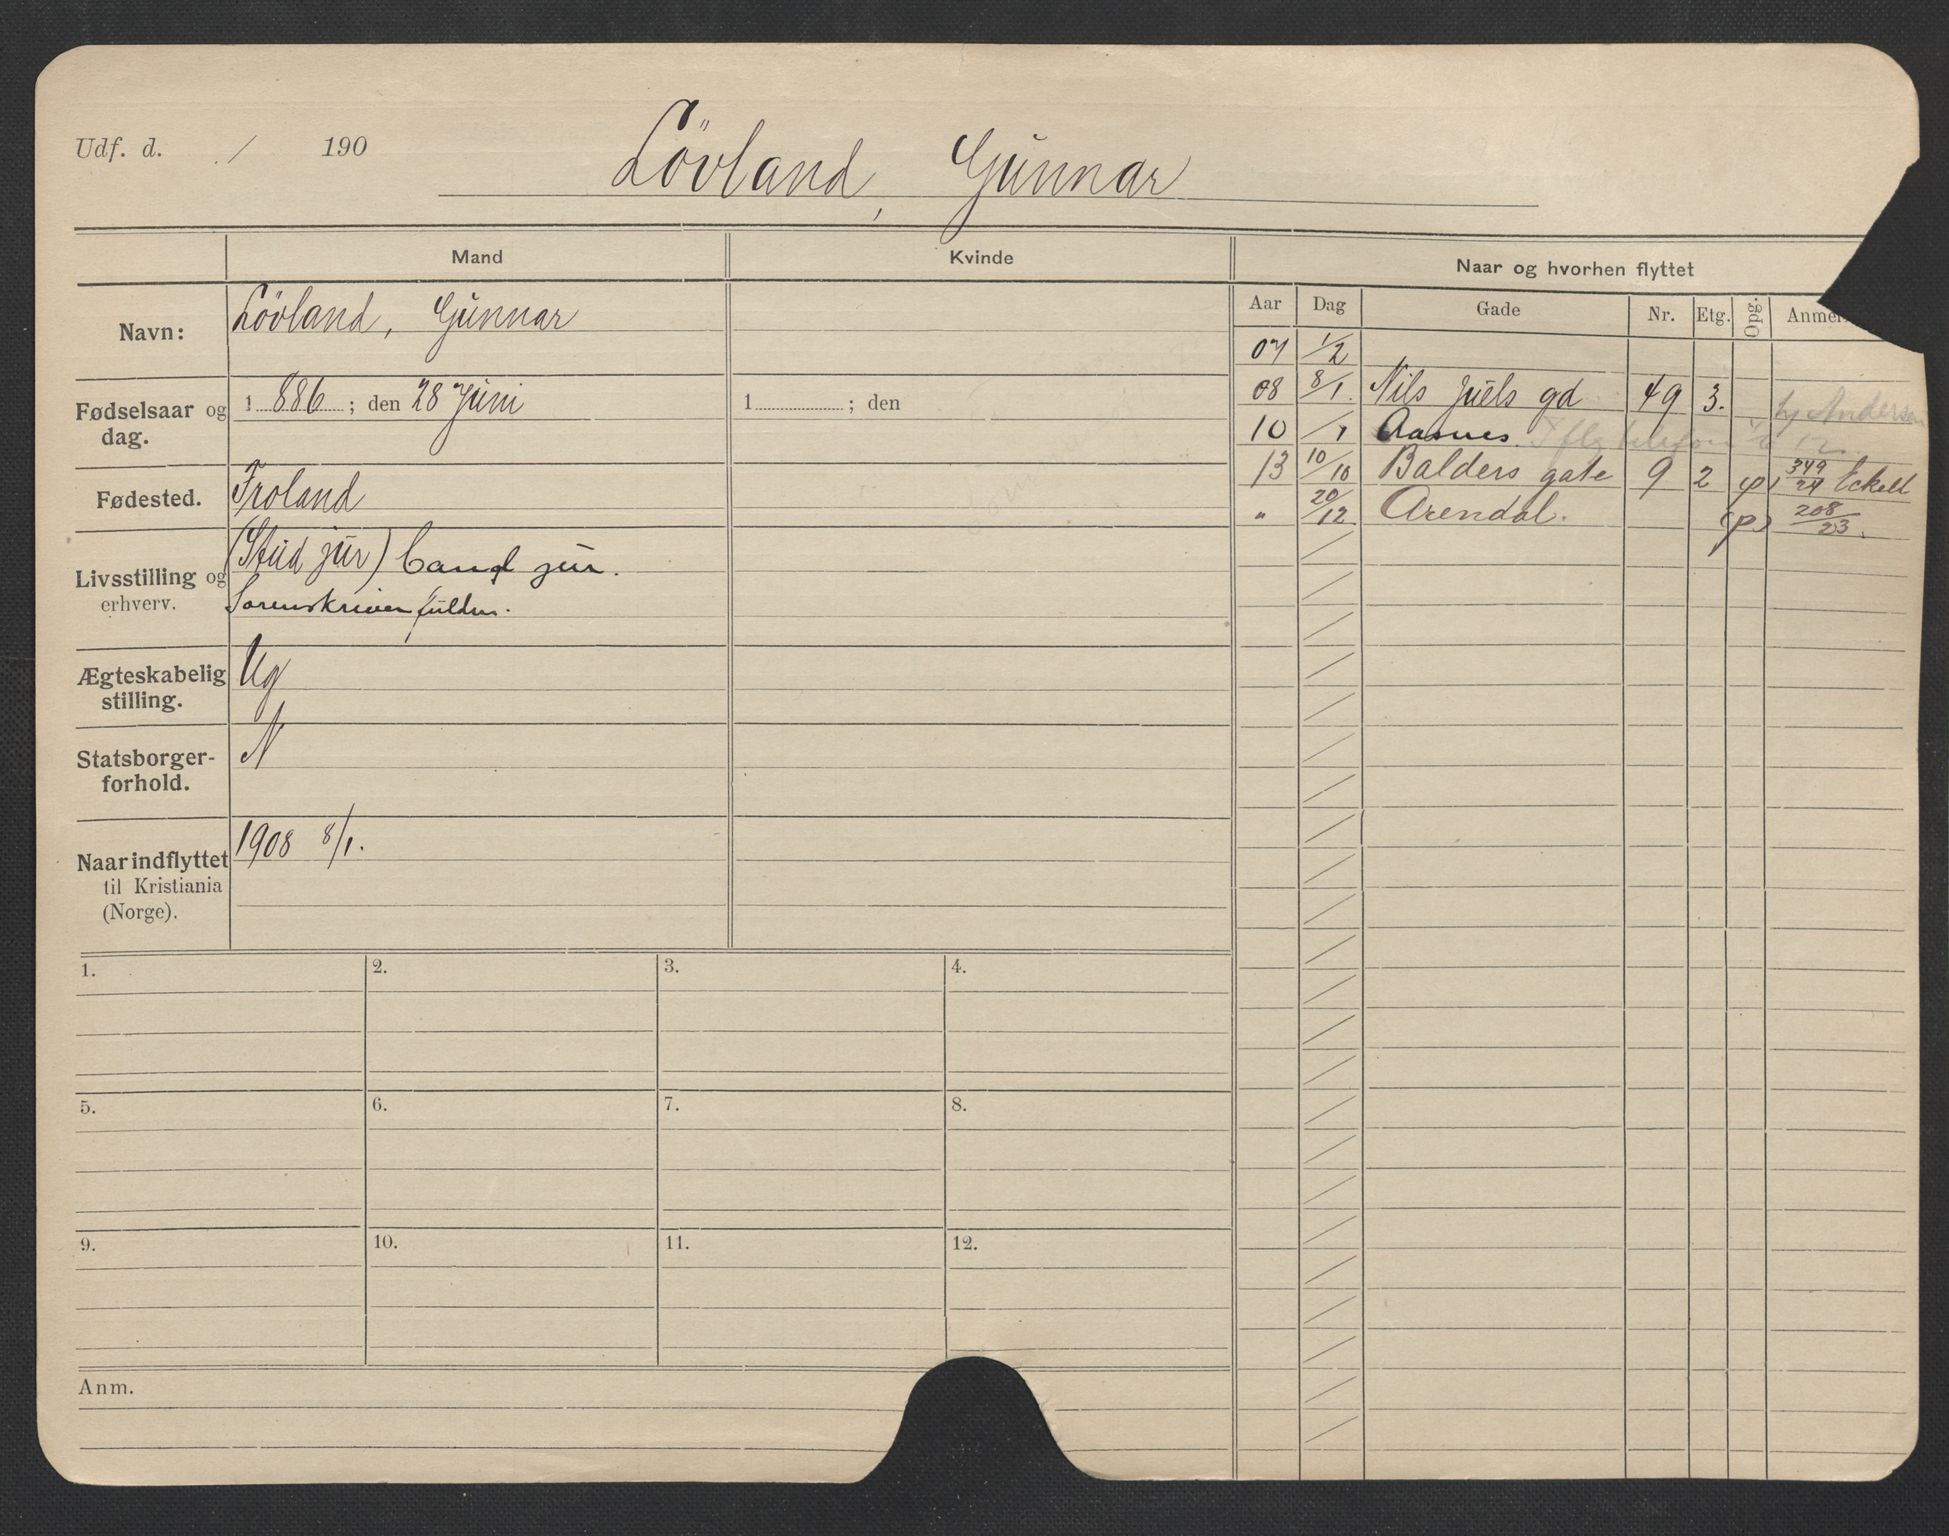 Udf. d. / 190
Lövland, Gunnar
Mand
Kvinde
Naar og hvorhen flyttet
Aar Dag Gade Nr. Etg. Opg. Anmer
Navn: Lövland, Gunnar
Fødselsaar og dag. 1 886 ; den 28 Juni
1 ; den
Fødested. Froland
Livsstilling og erhverv. (Stud jur) Cand jur.
Sorenskriver fuldm.
Ægteskabelig stilling. Ug
Statsborger-forhold. N
Naar indflyttet til Kristiania (Norge). 1908 8/1.
07 1/2
08 8/1. Nils Juels gd 49 3. Andersen
10 / 1 Aasnes.
13 10/10 Balders gate 9 2 (p) 349/24 Eckell
" 20/12 Arendal. (p) 208/23.
1. 2. 3. 4.
5. 6. 7. 8.
9. 10. 11. 12.
Anm.